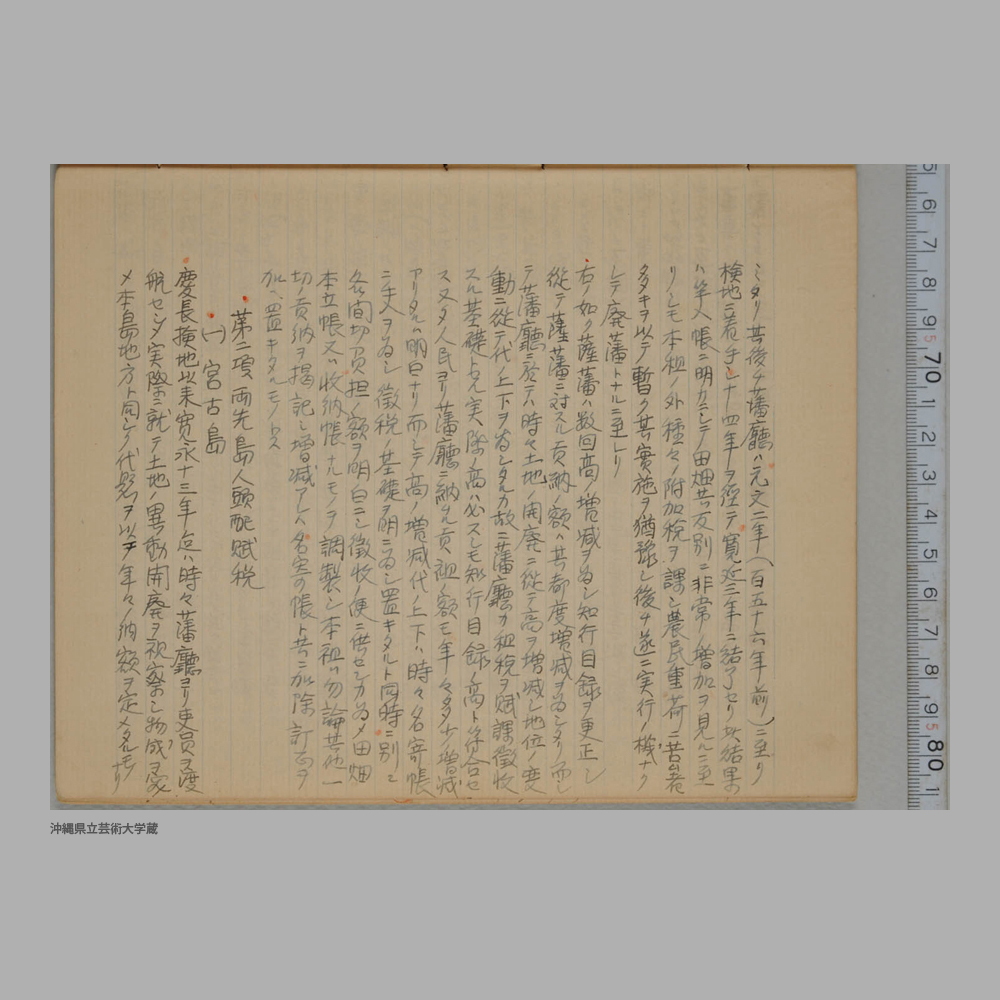 ミタリ其後チ藩廳ハ元文二年(百五十六年前)ニ至リ
検地ニ着手シ十四年ヲ経テ寛延三年ニ結了セリ其結果
ハ竿入帳ニ明カニシテ田畑共反別ニ非常ノ増加ヲ見ルニ至
リシモ本租ノ外種々ノ附加税ヲ課シ農民重荷ニ苦者
多キヲ以テ暫ク其実施ヲ猶豫シ後チ遂ニ実行ノ機ナク
シテ廃藩トナルニ至レリ
右ノ如ク薩藩ハ数回高ノ増減ヲ為シ知行目録ヲ更正シ
従テ薩藩ニ対スル貢納ノ額ハ其都度増減ヲ為シタリ而シ
テ藩廳ニ於テハ時々土地ノ開廃ニ従テ高ヲ増減シ地位ノ変
動ニ従テ代ノ上下ヲ為シタルカ故ニ藩廳カ租税ヲ賦課徴收
スル基礎タル実際ノ高ハ必スシモ知行目録ノ高ト符合セ
ス又タ人民ヨリ藩廳ニ納ル貢租ノ額モ年々多少ノ増減
アリタルハ明白ナリ而シテ高ノ増減代ノ上下ハ時々名寄帳
ニ丈ヲ為シ徴税ノ基礎ヲ明ニ為シ置キタルト同時ニ別ニ
各間切負担ノ額ヲ明白ニシ徴收ノ便ニ供センカ為メ田畑
本立帳又ハ收納帳ナルモノヲ調製シ本租ハ勿論其他一
切ノ貢納ヲ掲記シ増減アレハ名寄帳ト共ニ加除訂正ヲ
加ヘ置キタルモノトス
第二項 両先島人頭配賦税
(一) 宮古島
慶長検地以来寛永十三年迄ハ時々藩廳ヨリ吏員ヲ渡
航セシメ実際ニ就テ土地ノ異動開廃ヲ視察シ物成ヲ定
メ本島地方ト同シク代懸ヲ以テ年々ノ納額ヲ定メタルモノナリ
沖縄県立芸術大学蔵